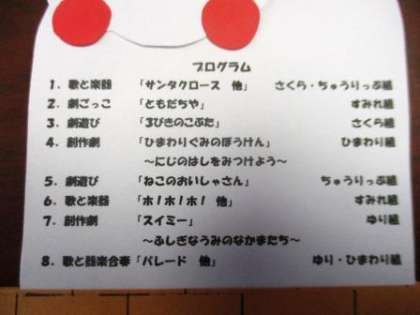 プログラム
1. 歌と楽器 「サンタクロース 他」 さくら・ちゅうりっぷ組
2. 劇ごっこ 「ともだちや」 すみれ組
3. 劇遊び 「3びきのこぶた」 さくら組
4. 創作劇 「ひまわりぐみのぼうけん」 ひまわり組
～にじのはしをみつけよう～
5. 劇遊び 「ねこのおいしゃさん」 ちゅうりっぷ組
6. 歌と楽器 「ホ！ホ！ホ！ 他」 すみれ組
7. 創作劇 「スイミー」 ゆり組
～ふしぎなうみのなかまたち～
8. 歌と器楽合奏 「パレード 他」 ゆり・ひまわり組